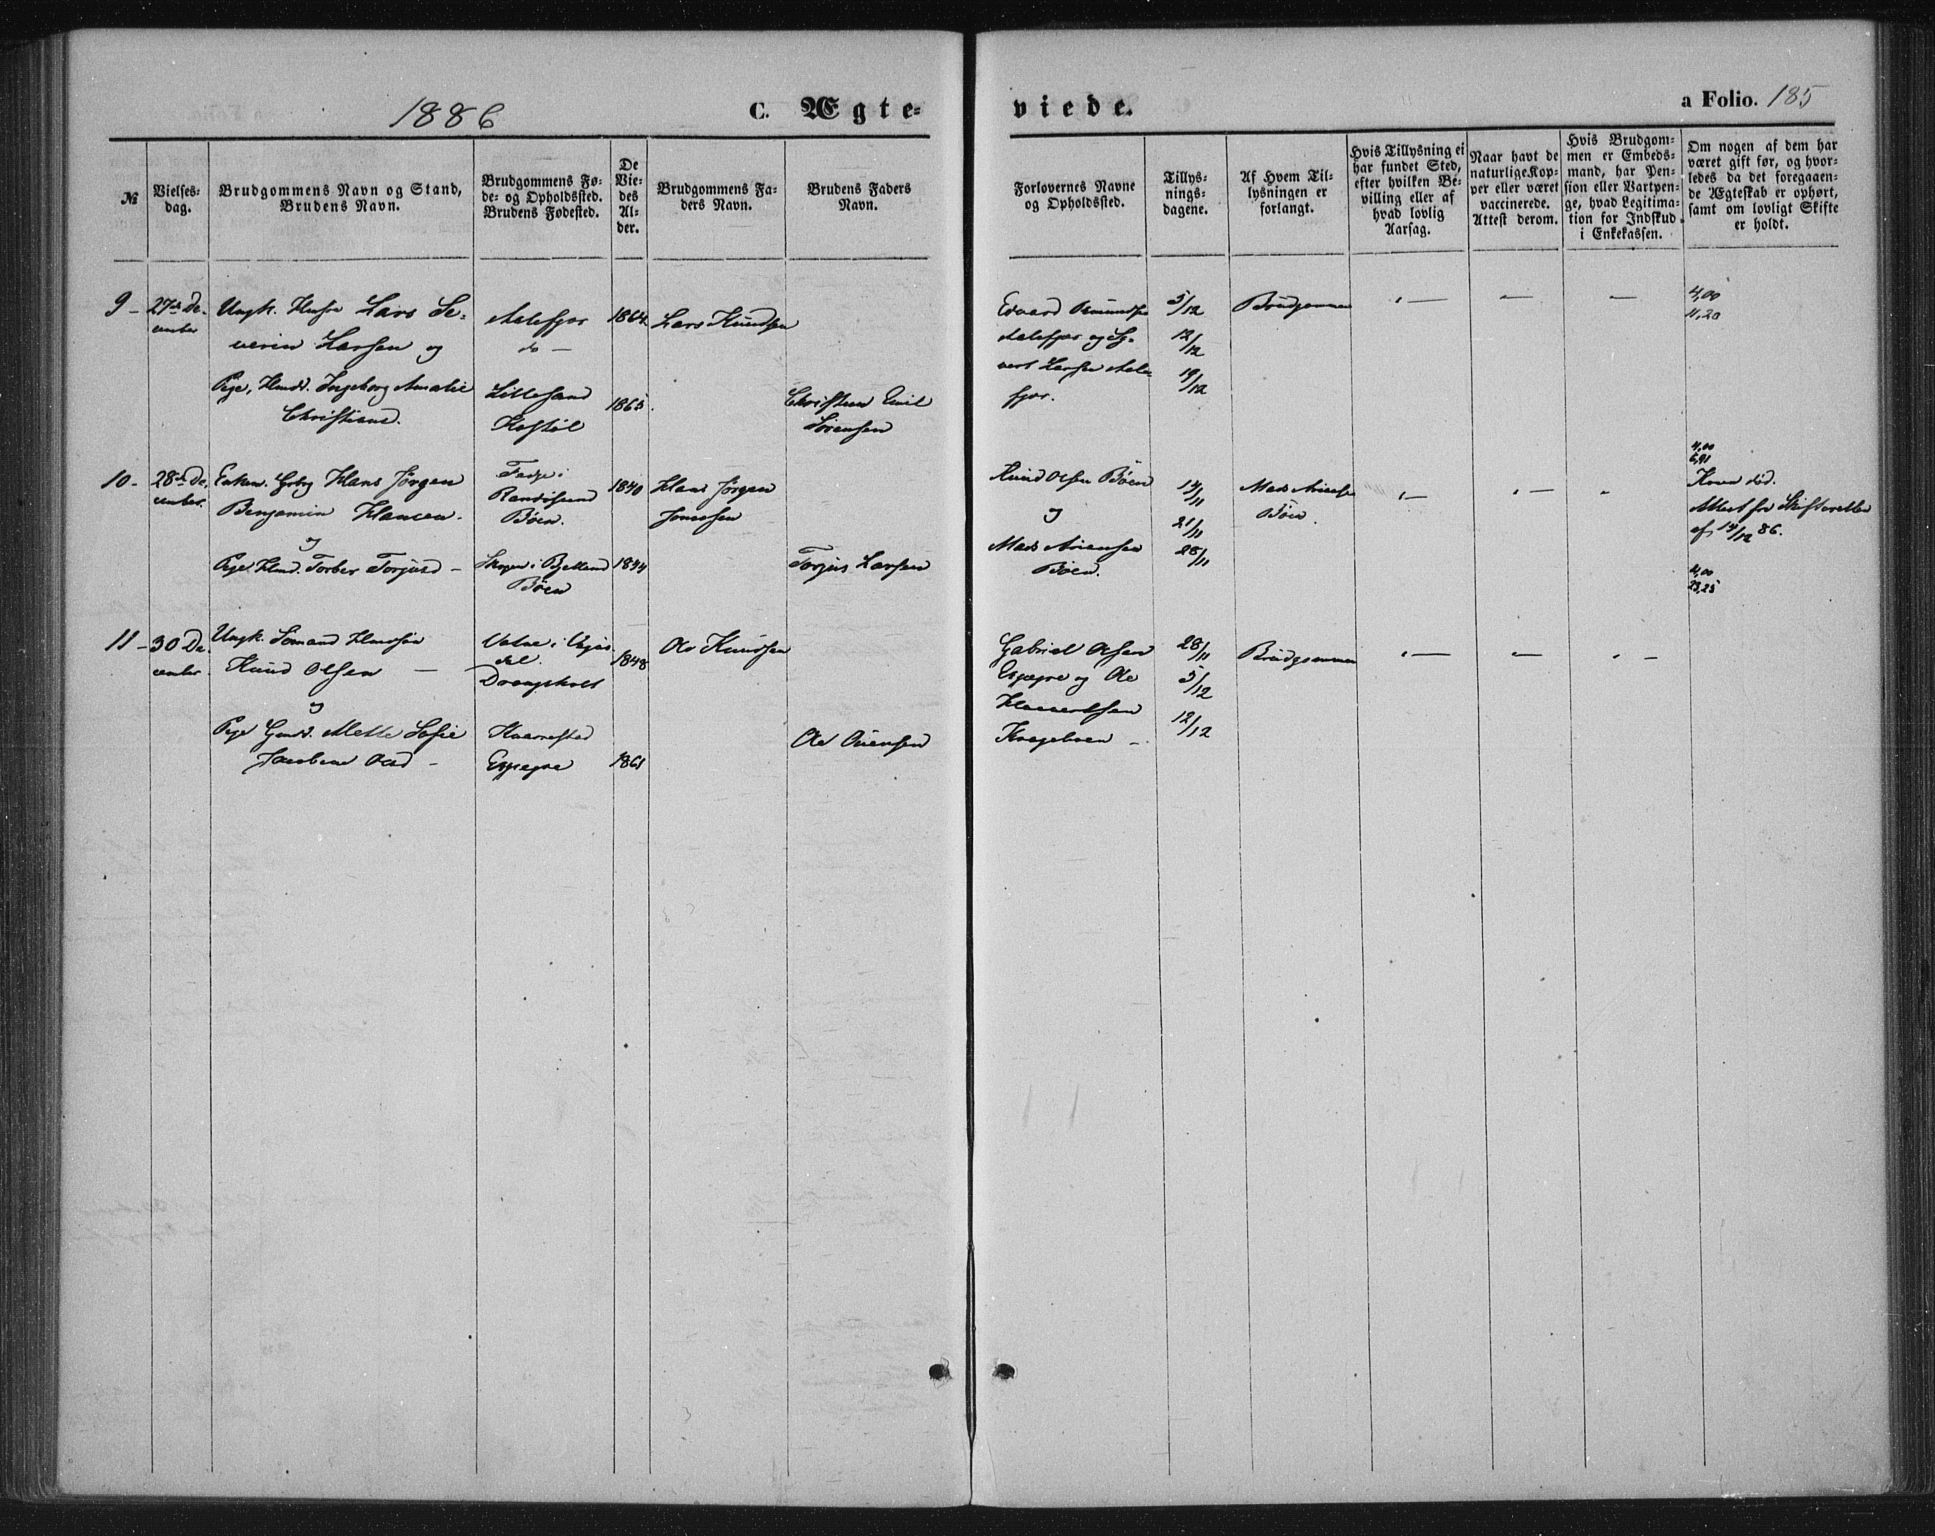 1886
C. Ægte-
viede.
a Folio. 185
№
Vielses-
dag.
Brudgommens Navn og Stand,
Brudens Navn.
Brudgommens Fø-
de- og Opholdssted.
Brudens Fødested.
De
Vie-
des
Al-
der.
Brudgommens Fa-
ders Navn.
Brudens Faders
Navn.
Forlovernes Navne
og Opholdssted.
Tillys-
nings-
dagene.
Af Hvem Til-
lysningen er
forlangt.
Hvis Tillysning ei
har fundet Sted,
efter hvilken Be-
villing eller af
hvad lovlig
Aarsag.
Naar havt de
naturlige Kop-
per eller været
vaccinerede.
Attest derom.
Hvis Brudgom-
men er Embeds-
mand, har Pen-
sion eller Vartpen-
ge, hvad Legitima-
tion for Indskud
i Enkekassen.
Om nogen af dem har
været gift før, og hvor-
ledes da det foregaaen-
de Ægteskab er ophørt,
samt om lovligt Skifte
er holdt.
9 -
27de De-
cember
Ungk. Lars Se-
verin Larsen og
Pige, Ingeborg Amalie
Christiansd.
Aalefjær
do -
Lillesand
Kostøl
1864
1865
Lars Knudsen
Christen Emil
Sørensen
Edvard Osmundsen
Aalefjær og Sy-
vert Larsen Aale-
fjær.
5/12
12/12
19/12
Brudgommen
4,00
4,20
10 -
28de De-
cember.
Enkem. Gbrg Hans Jørgen
Benjamin Hansen.
og
Pige Torber Torjusd -
i
Randøsund
Bøen.
i Bjelland
Bøen
1840
1844
Hans Jørgen
Torjus Larsen
Knud Olsen Bøen
og
Mads Arensen
Bøen.
14/11
21/11
28/11
Mads Arensen
Bøen.
4,00
6,91
Konen død.
Attest fra Skifteretten
af 14/12 86.
11 -
30 De-
cember.
Ungk. Sømand
Knud Olsen -
og
Pige Mette Sofie
Olsd -
i Vegus-
dal.
Drangsholt
1848
1861
Ole Knudsen
Ole
Gabriel Olsen
og Ole
28/11
5/12
12/12
Brudgommen
4,00
23,25